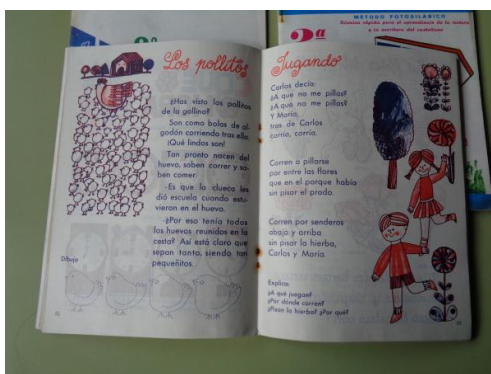 MÉTODO FOTOSILÁBICO
Técnica rápida para el aprendizaje de la lectura
y la escritura del castellano
2ª
Los pollitos
¿Has visto los pollitos
de la gallina?
Son como bolas de al-
godón corriendo tras ella.
¡Qué lindos son!
Tan pronto nacen del
huevo, saben correr y sa-
ben comer.
-Es que la clueca les
dió escuela cuando estu-
vieron en el huevo.
-¿Por eso tenía todos
los huevos reunidos en la
cesta? Así está claro que
sepan tanto, siendo tan
pequeñitos.
Dibuja
Jugando
Carlos decía:
¿A que no me pillas?
¿A que no me pillas?
Y María,
tras de Carlos
corría, corría.
Corren a pillarse
por entre las flores
que en el parque había
sin pisar el prado.
Corren por senderos
abajo y arriba
sin pisar la hierba,
Carlos y María.
Explica:
¿A qué juegan?
¿Por dónde corren?
¿Pisan la hierba? ¿Por qué?